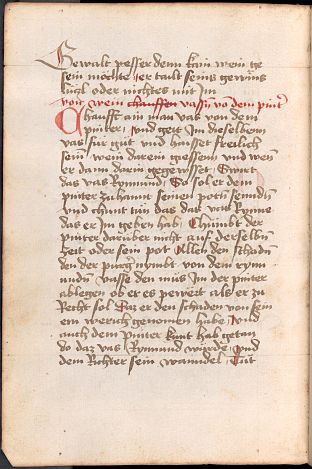 Gewalt pesser denn kain wein ge
sein möchte er tailt seins gewins
lüzl oder nichtes mit Im
von wein chauffen vassz vo dem pintt
Chaufft ain man vas von dem
pinter und geit Im dieselbenn
vas für gut und haisset freilich
sein wein darein giessenn und wenn
er dann darin gegosset wirt
das vas Rynnund So sol er dem
pinter zu hannt seinen poten senndñ
und chunt tun das das vas Rynne
das er Im geben hab Chumbt der
pinter darüber nicht auf derselbn
zeit oder sein pot Allen den schadn
den der purger nymbt von dem rynn
undñ vasse den mus Im der pinter
ablegen ob er es pewert als er zu
Recht sol Daz er den schaden von sein
em werich genomen habe und
auch dem pinter kunt hab getan
do daz vas Rynnund würde und
dem Richter sein wanndel Tut